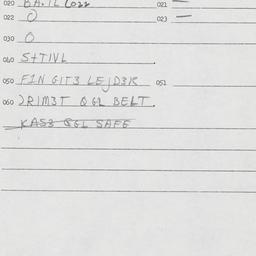 020 BA.TL Co22 021 —
022 O 023 —
030 O
040 S+TIVL
050 FIN GIT3 LEJD3R 051
060 2RIM3T QGL BELT.
KAS3 QGL SAFE